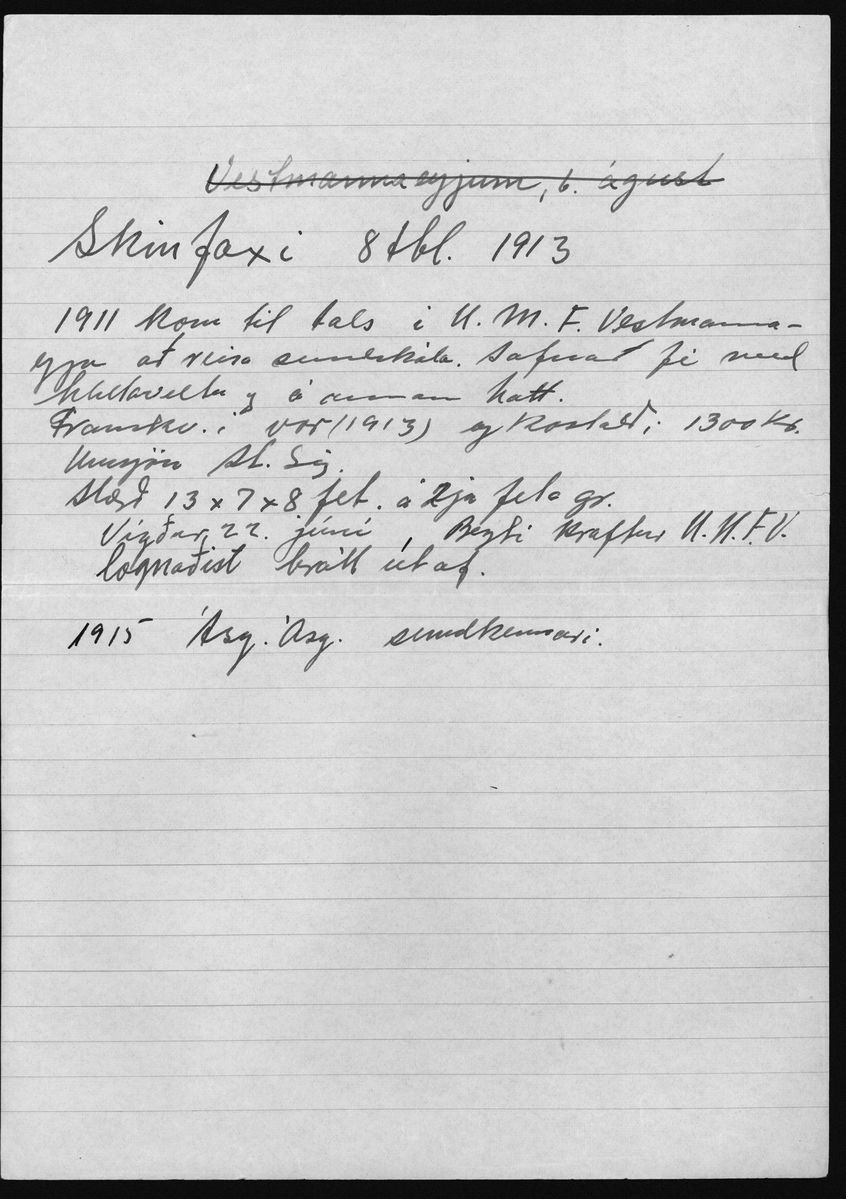 Vestmannaeyjum, 6. ágúst
Skinfaxi 8 tbl. 1913
1911 kom til tals í U. M. F. Vestmanna-
eyja að reisa sundskála. Safnað fé með
hlutaveltu og á annan hatt.
Framkv. í vor (1913) og kostaði 1300 kr.
Umsjón St. Sig.
Stærð 13 x 7 x 8 fet. á 2ja feta gr.
Vígður 22. júní, kraftur U. M. F. V.
lognaðist brátt útaf.
1915 Ásg. Ásg. sundkennari.